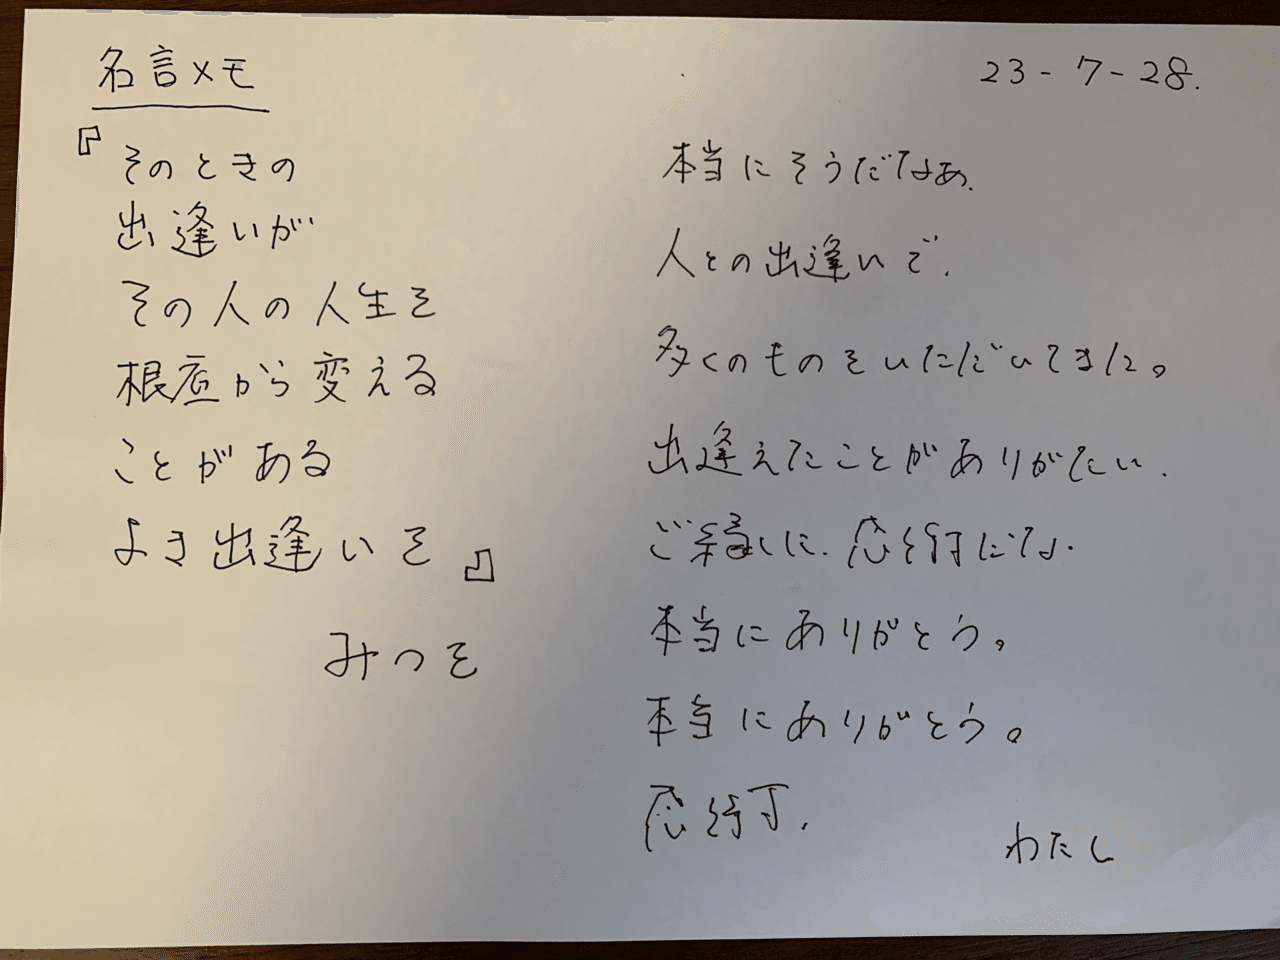 名言メモ
23-7-28.
『そのときの
出逢いが
その人の人生を
根底から変える
ことがある
よき出逢いを』
みつを
本当にそうだなぁ、
人との出逢いで、
多くのものをいただいてきた。
出逢えたことがありがたい、
ご縁に、
本当にありがとう。
本当にありがとう。
わたし